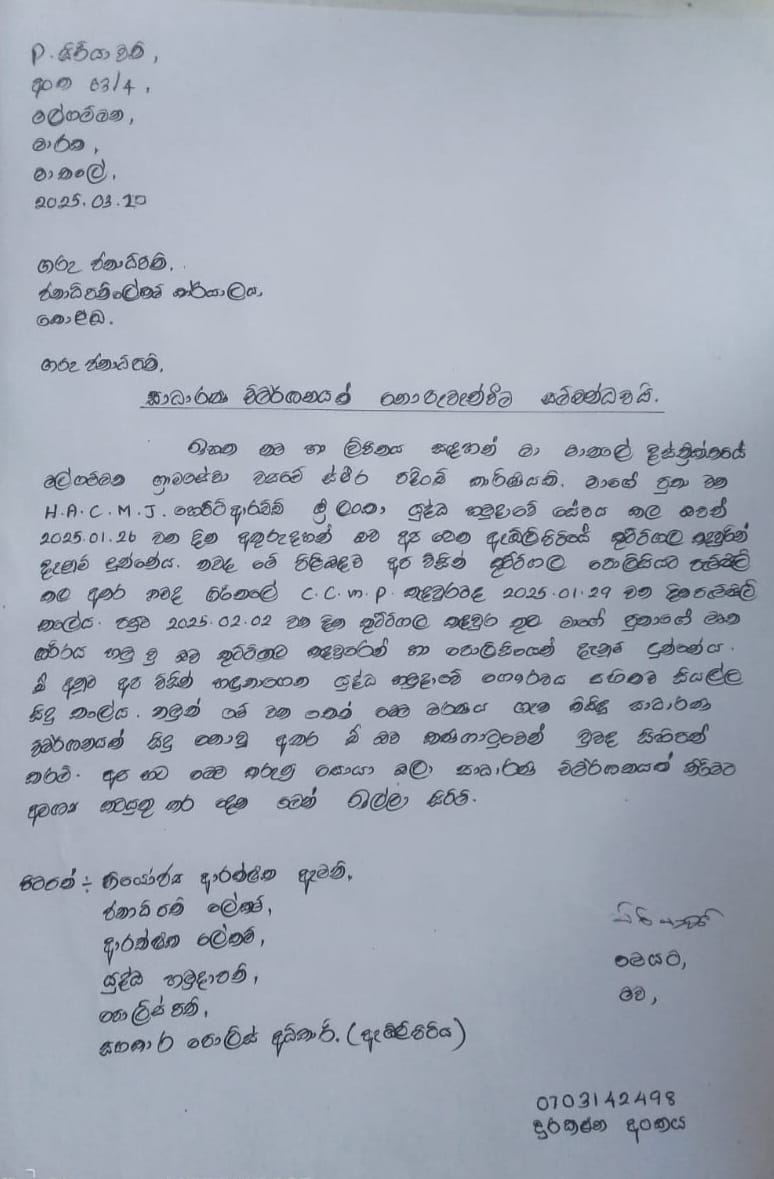 P. සිරියාවතී,
අංක 03/4,
මල්ගම්මන,
මාරක,
මාතලේ.
2025.03.20
ගරු ජනාධිපති,
ජනාධිපති ලේකම් කාර්යාලය,
කොළඹ.
ගරු ජනාධිපති,
සාධාරණ විමර්ශනයක් නොරුවැන්වීම සම්බන්ධවයි.
ඉහත නම හා ලිපිනය සඳහන් මා මාතලේ දිස්ත්‍රික්කයේ
මල්ගම්මන ග්‍රාමසේවා වසමේ ස්ථිර පදිංචි කාරියකි. මාගේ පුතා වන
H.A.C.M.J. හෙට්ටිආරච්චි ශ්‍රී ලංකා යුද්ධ හමුදාවේ සේවය කල අතර
2025.01.26 වන දින අතුරුදහන් බව අප වෙත ඇඹිලිපිටියේ කඳවුරින්
දැනුම් දුන්නේය. තවද මේ පිළිබඳව අප විසින් පොලිසියට පැමිණිලි
කල අතර තවද C.C.M.P. කඳවුරටද 2025.01.29 වන දින පැමිණිලි
කලේය. පසුව 2025.02.02 වන දින කඳවුර තුල මාගේ පුතාගේ මෘත
ශරීරය හමු වූ බව කඳවුරෙන් හා පොලිසියෙන් දැනුම් දුන්නේය.
ඒ අනුව අප විසින් හඳුනාගෙන යුද්ධ හමුදාවේ ගෞරවය සහිතව සියල්ල
සිදු කලේය. නමුත් මේ වන තෙක් මෙම මරණය ගැන කිසිදු සාධාරණ
විමර්ශනයක් සිදු නොවූ අතර ඒ බව කණගාටුවෙන් වුවද සිහිපත්
කරමි. අප හට මෙම කරුණු සොයා බලා සාධාරණ විමර්ශනයක් කිරීමට
අවශ්‍ය කටයුතු කර දෙන මෙන් ඉල්ලා සිටිමි.
පිටපත් :- නියෝජ්‍ය ආරක්ෂක ඇමති,
ජනාධිපති ලේකම්,
ආරක්ෂක ලේකම්,
යුද්ධ හමුදාපති,
පොලිස්පති,
සහකාර පොලිස් අධිකාරී. (ඇඹිලිපිටිය)
මෙයට,
මව,
0703142498
දුරකථන අංකය